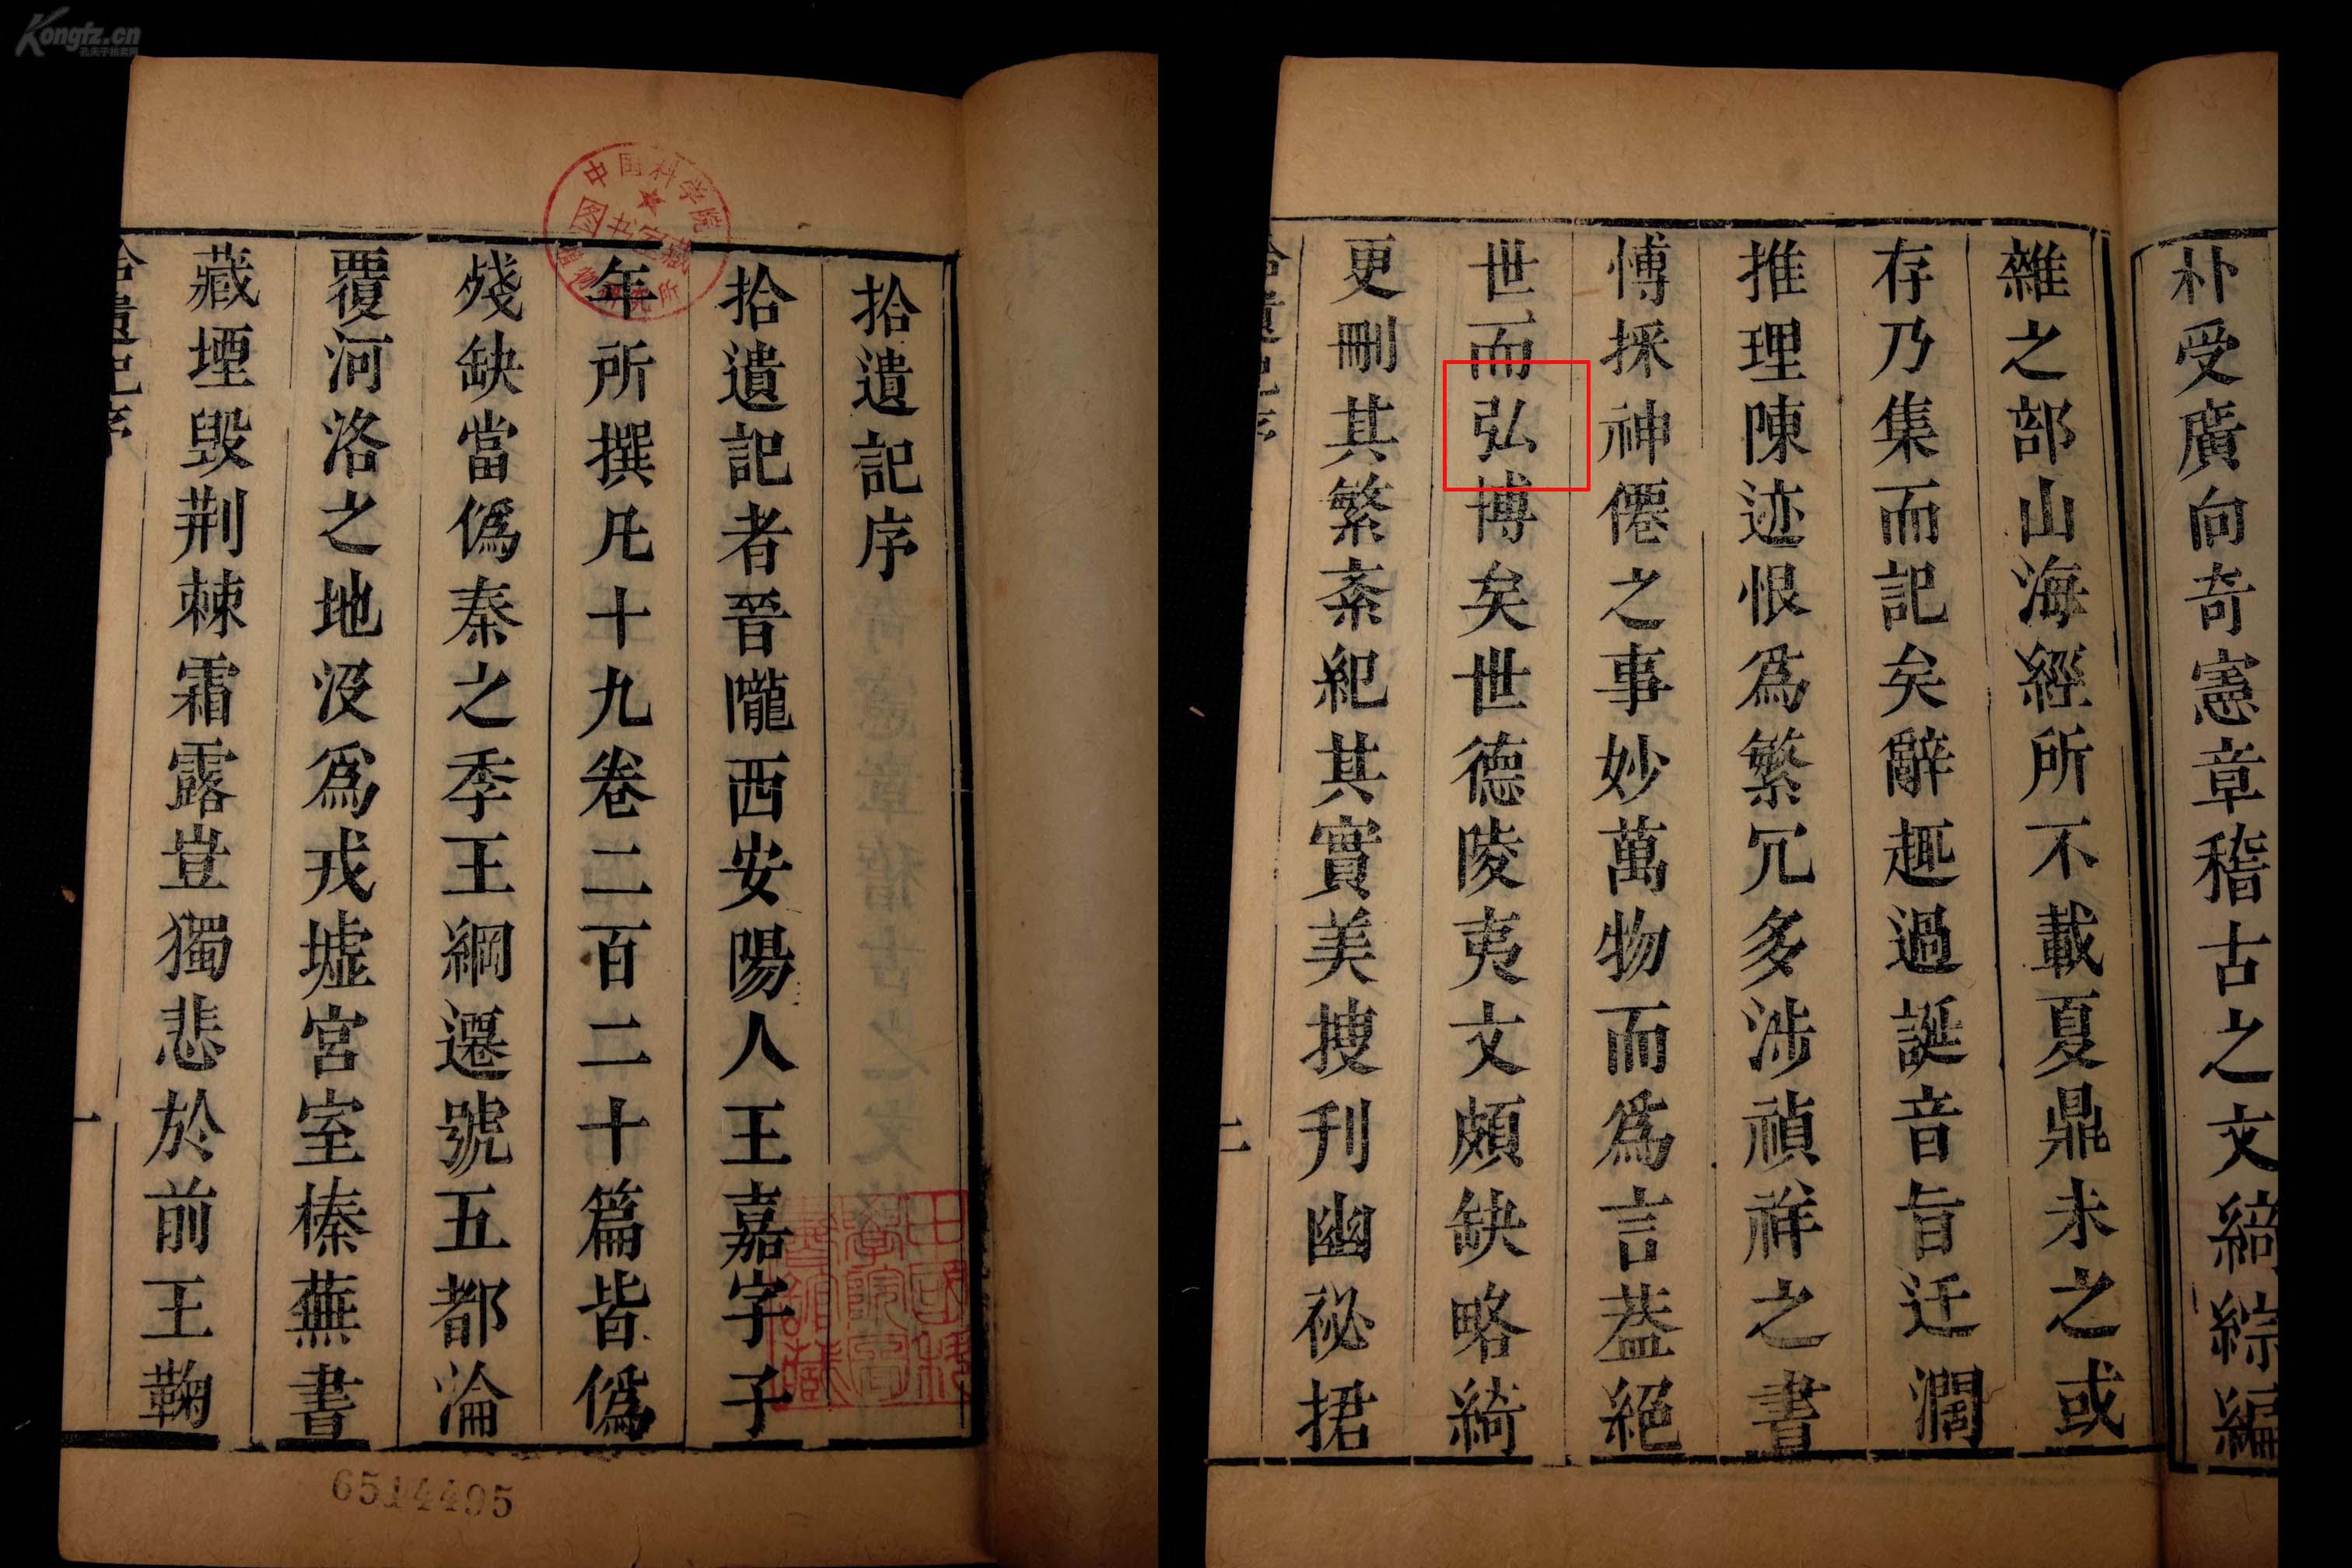 Kongfz.cn
孔夫子拍卖网
中国科学院
拾遺記序
拾遺記者晉隴西安陽人王嘉字子
年所撰凡十九卷二百二十篇皆僞
殘缺當僞秦之季王綱遷號五都淪
覆河洛之地沒爲戎墟宮室榛蕪書
藏堙毁荆棘霜露豈獨悲於前王鞠
拾遺記序
一
6514495
朴受廣向奇憲章稽古之文綺綜編
雜之部山海經所不載夏鼎未之或
存乃集而記矣辭趣過誕音旨迂濶
推理陳迹恨爲繁冗多涉禎祥之書
愽採神僊之事妙萬物而爲言葢絕
世而弘博矣世德陵夷文頗缺略綺
更刪其繁紊紀其實美搜刋幽祕捃
拾遺記序
二